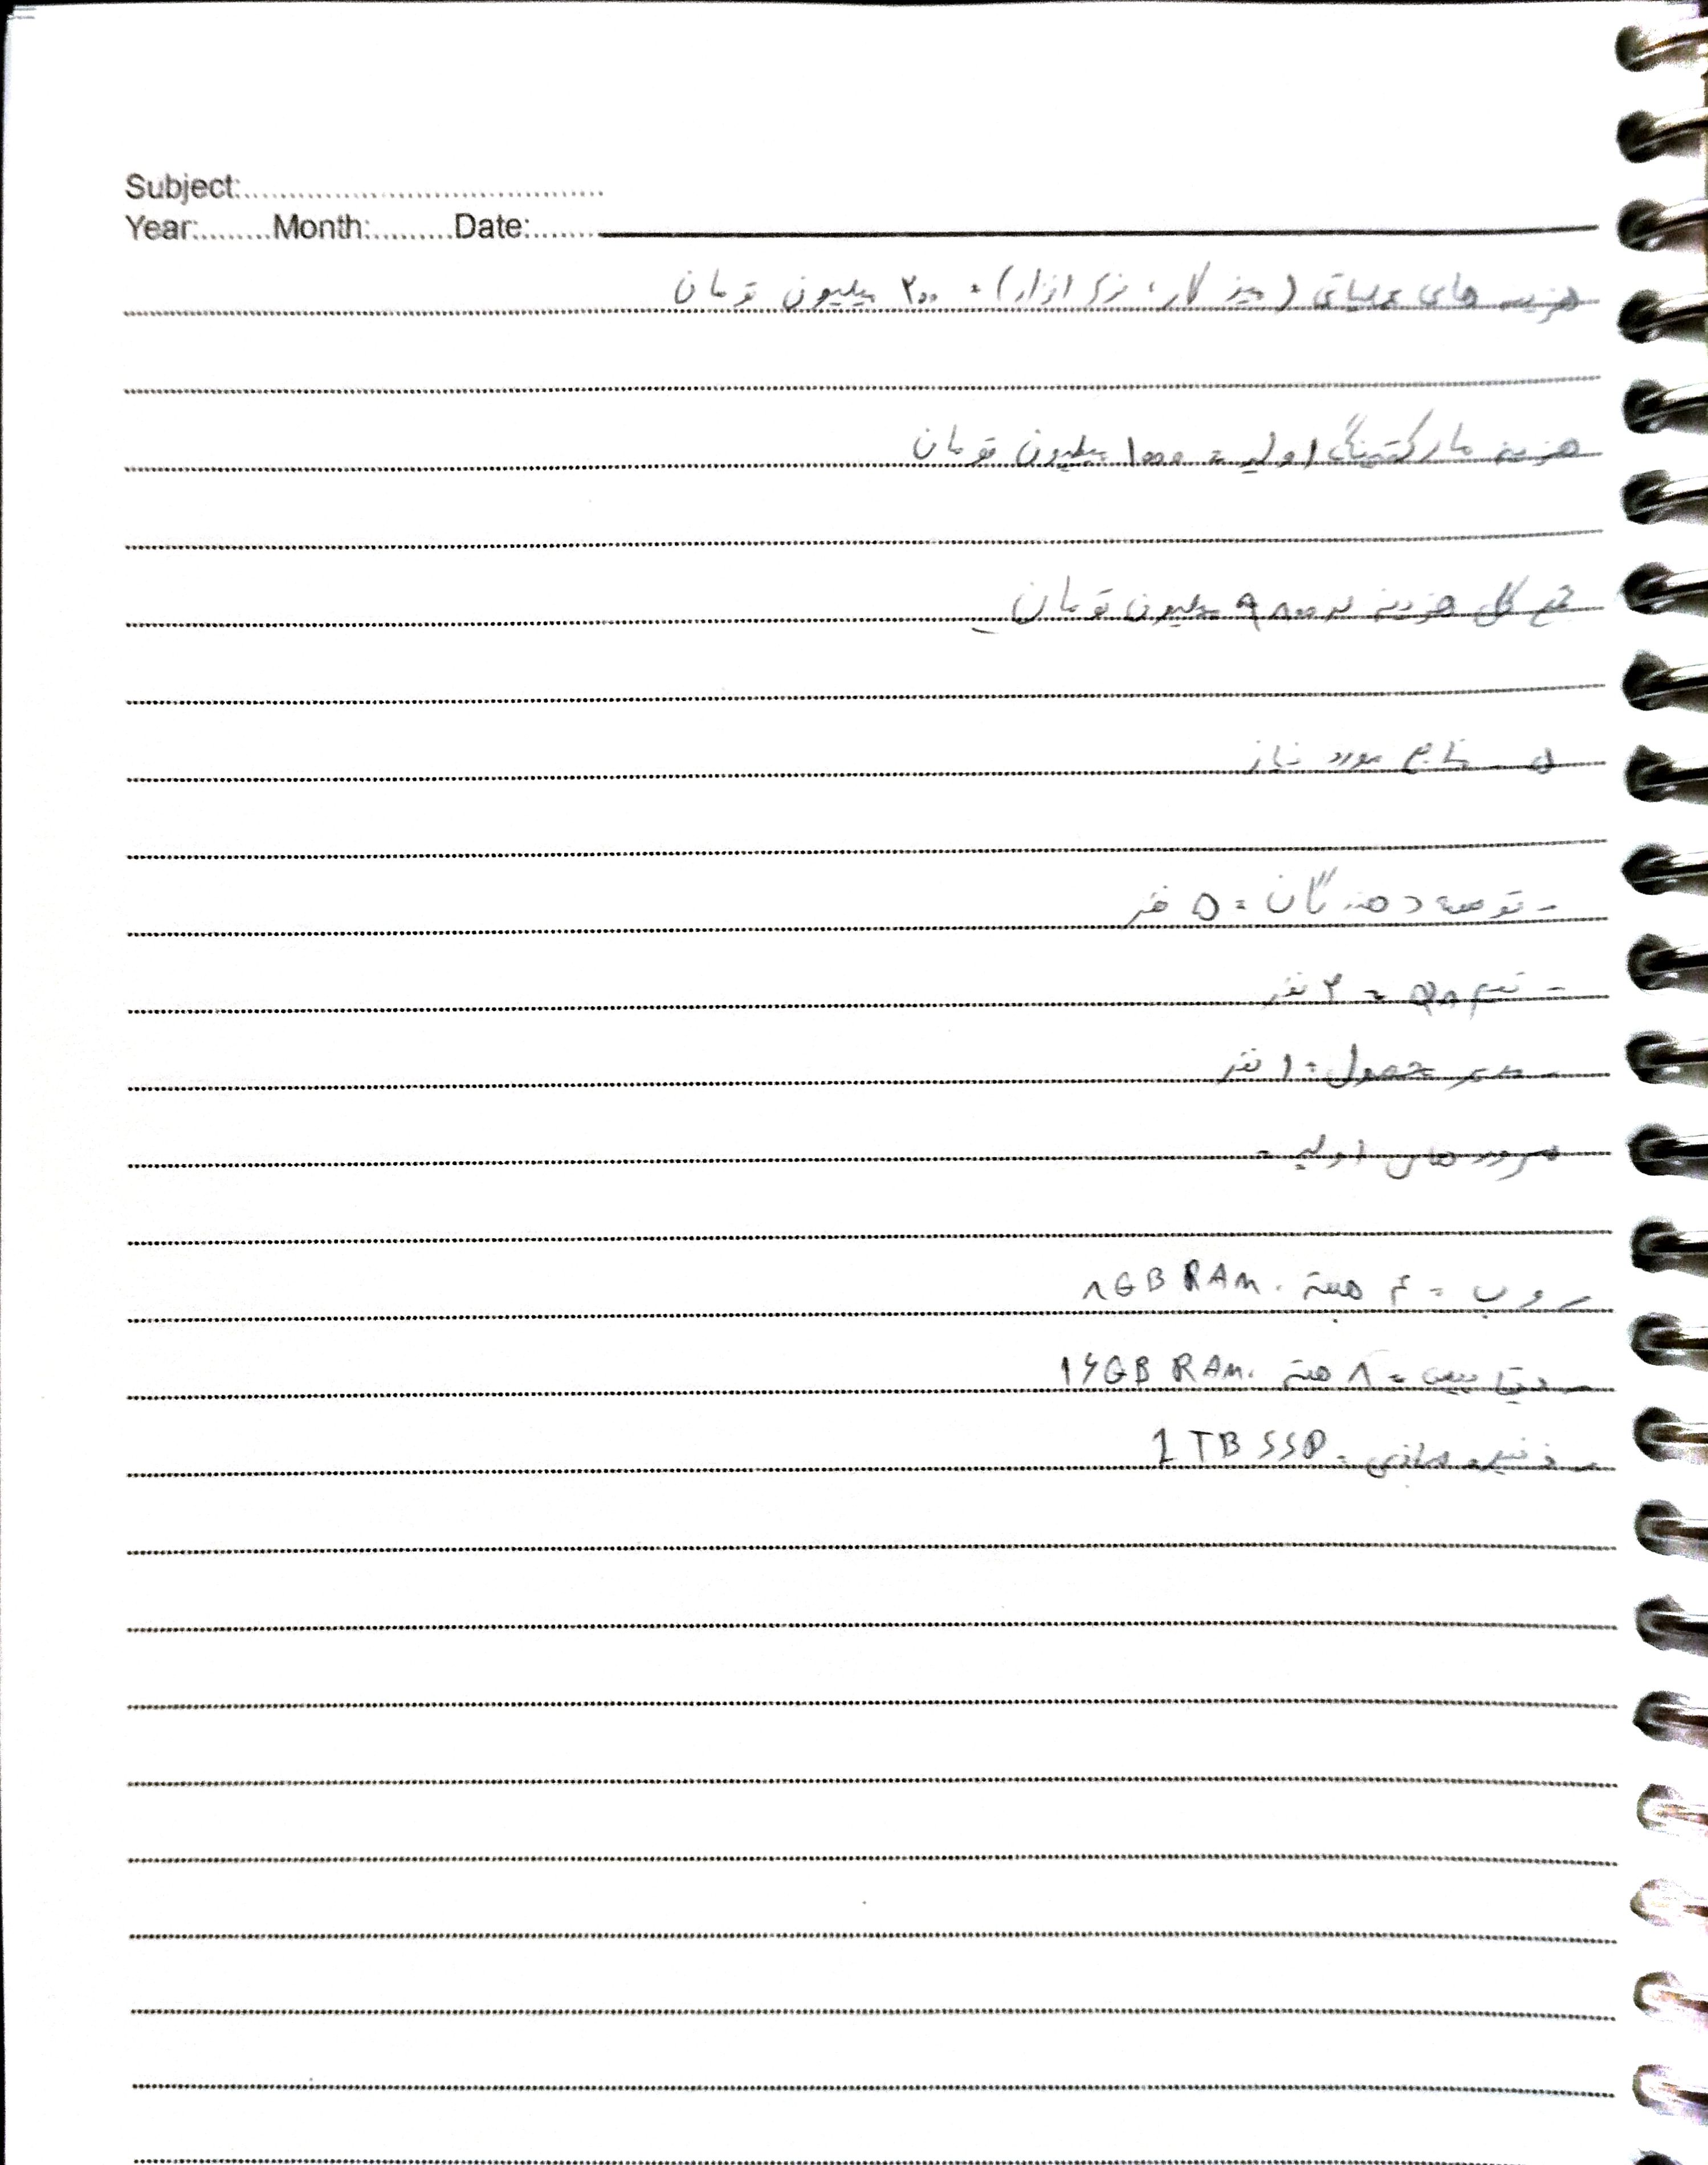 Subject:
Year: Month: Date:
هزینه های عملیاتی (میز کار، نرم افزار) = ۲۰۰ میلیون تومان
هزینه مارکتینگ اولیه = ۱۰۰۰ میلیون تومان
جمع کل هزینه = ۹۸۰۰ میلیون تومان
۵ - منابع مورد نیاز
- توسعه دهندگان = ۵ نفر
- تیم = ۲ نفر
- مدیر محصول = ۱ نفر
سرور های اولیه =
- وب = ۴ هسته . ۸GB RAM
- دیتابیس = ۸ هسته . ۱۶GB RAM
- ذخیره سازی = 1 TB SSD